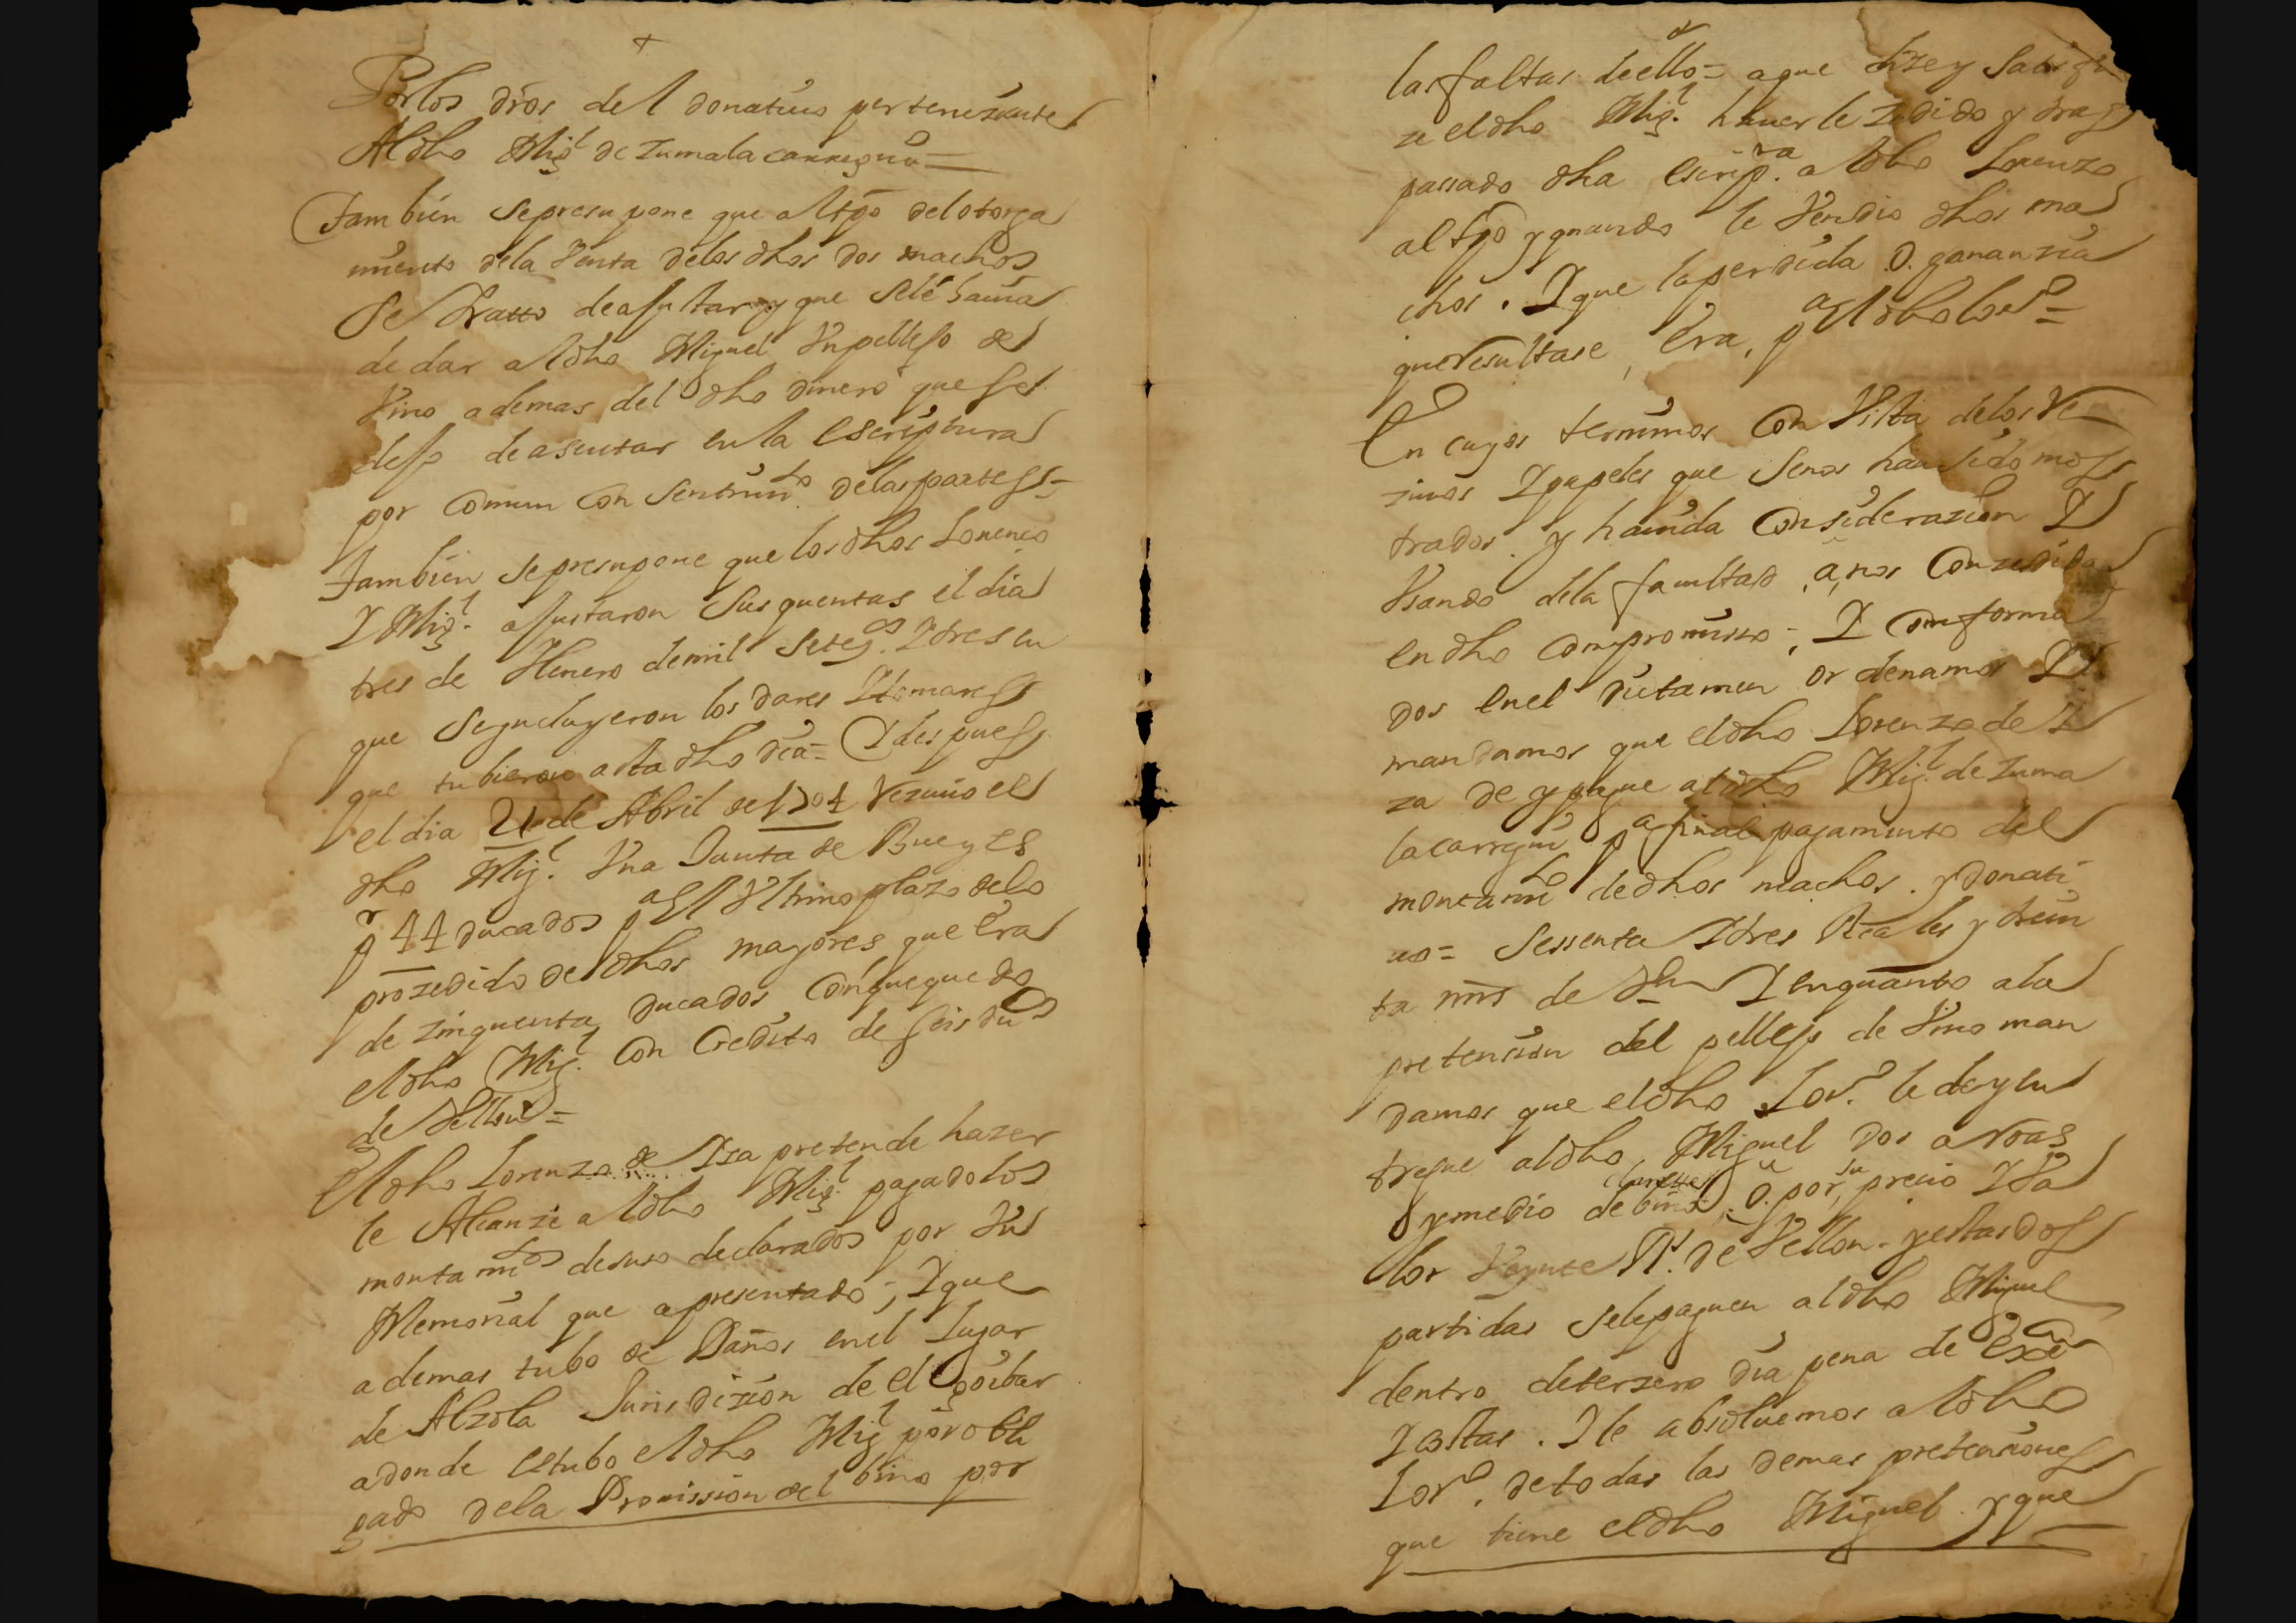 +
Por los dr̃os del donatiuo pertenezientes
Al dho Migl de Zumalacarregui=
Tambien se presupone que al tpo del otorga
miento de la Venta de los dhos dos machos
Se Tratto de ajustar y que se le hauia
de dar al dho Miguel Un pellejo de
Vino ademas del dho dinero que se
dejo de asentar en la escriptura
por comun consentimto de las partes=
Tambien se presupone que los dhos Lorenço
Y Migl ajustaron sus quentas el dia
tres de Henero de mil seteços Y tres en
que se yncluyeron los dares Y tomares
que tubieron asta dho dia= Y despues
el dia 21 de Abril de 1704 rezuio el
dho Migl Vna Junta de Bueyes
pr 44 ducados pa el Vltimo plazo de lo
prozedido de dhos mayores que era
de zinquenta ducados con que quedo
el dho Migl con Credito de seis dus
de Vellon=
El dho Lorenzo de Iza pretende hazer
le Alcanze al dho Migl pagado los
montamtos desuso declarados por Vn
Memorial que a presentado; Y que
ademas tubo de Daños en el Lugar
de Alzola Jurisdizion de elgoibar
adonde estubo el dho Migl por obli
gado de la Prouission del bino por
las faltas de ello= a que dize y satisfa
ze el dho Migl hauerle zedido y tras
passado dha escripra al dho Lorenzo
al tpo y quando le Vendio dhos ma
chos. Y que la perdida o gananzia
que resultase, era, pa el dho Lorço=
En cuyos terminos con Vista de los re
ziuos Y papeles que se nos han sido mos
trados y hauida consideracion Y
Vsando de la facultad a nos conzedida
en dho compromisso; Y conforma
dos en el dictamen ordenamos Y
mandamos que el dho Lorenzo de Y
za de y pague al dho Migl de Zuma
lacarregui pa final pagamiento del
montamto de dhos machos y donati
uo= sessenta Y tres Reales y trein
ta mrs de Vn Y en quanto a la
pretension del pellejo de Vino man
damos que el dho Lorço le de y en
tregue al dho Miguel dos arroas
y medio de bino clarette o por su precio Y Va
lor Veynte Rs de Vellon y estas dos
partidas se le paguen al dho Miguel
dentro de terzero dia pena de exeon
Y costas. Y le absoluemos al dho
Lorço de todas las demas pretensiones
que tiene el dho Miguel y que